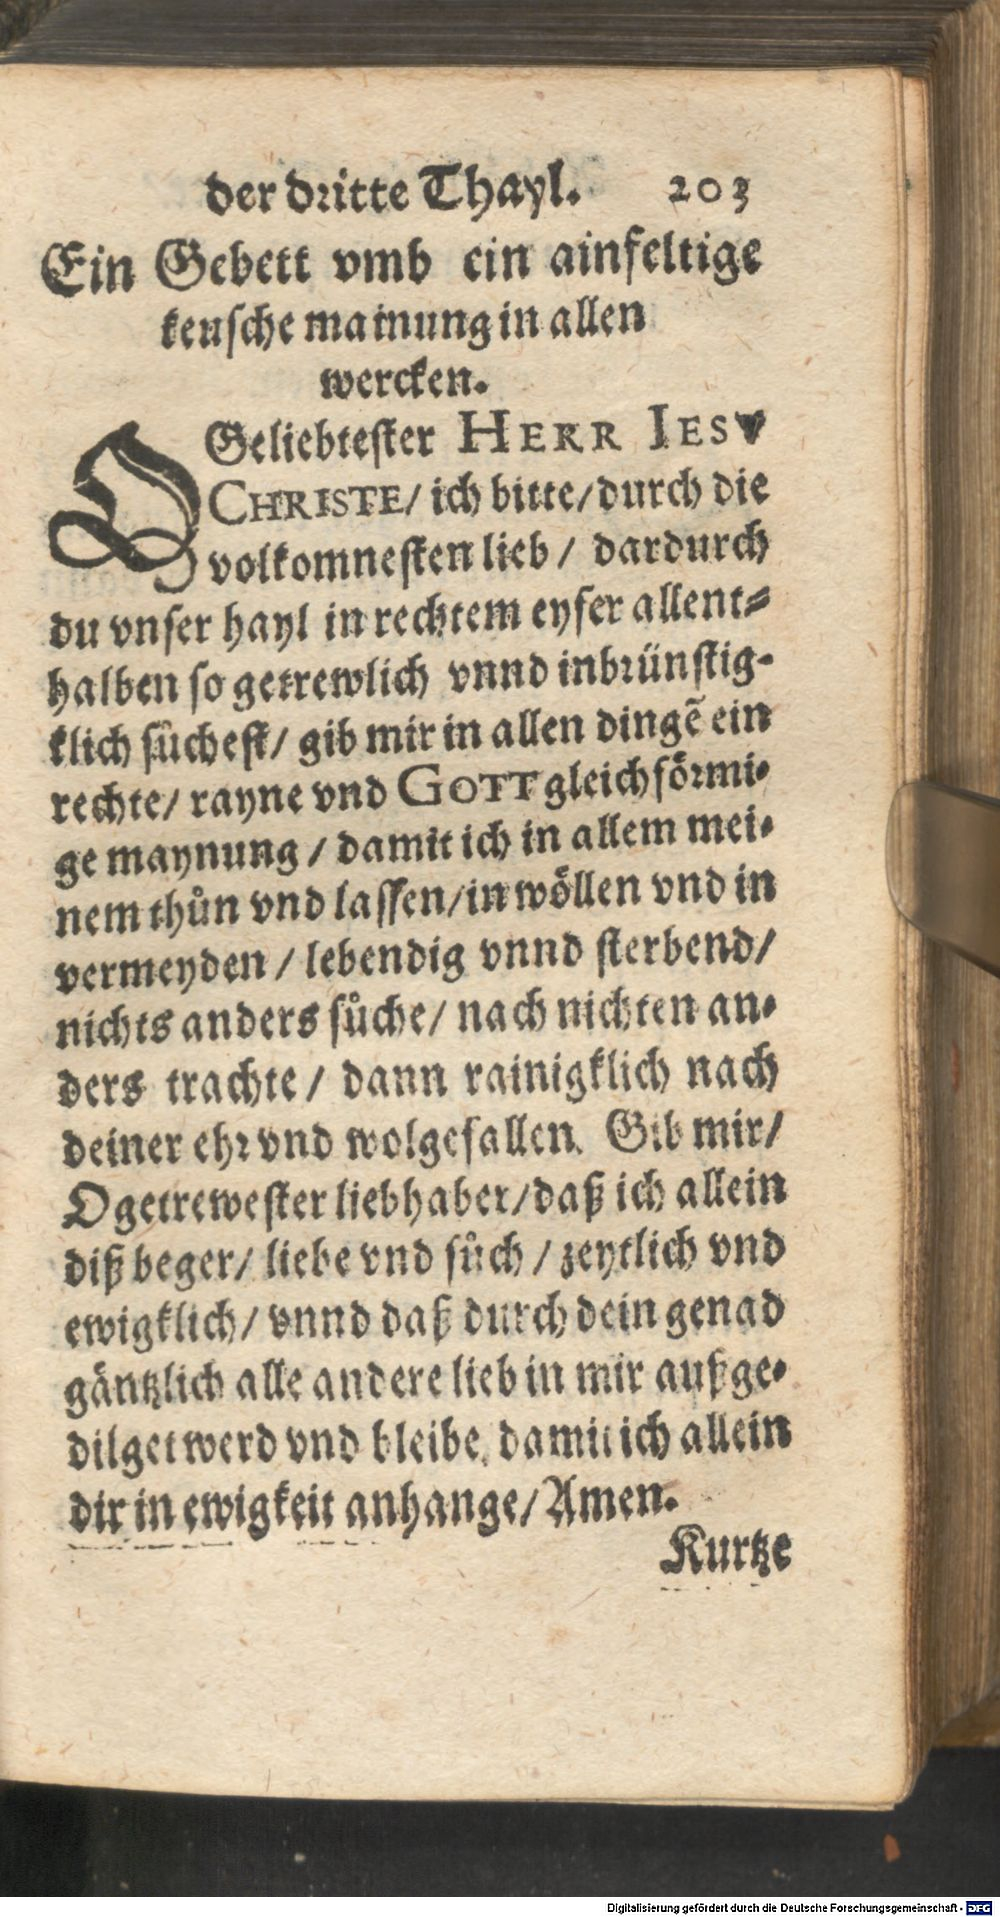 der dritte Thayl. 203
Ein Gebett vmb ein ainfeltige
keusche mainung in allen
wercken.
O Geliebtester HERR IESV
CHRISTE/ ich bitte/ durch die
volkomnesten lieb / dardurch
du vnser hayl in rechtem eyfer allent⸗
halben so getrewlich vnnd inbrünstig-
klich sůchest/ gib mir in allen dingẽ ein
rechte/ rayne vnd GOTT gleichförmi-
ge maynung / damit ich in allem mei-
nem thůn vnd lassen/ in wöllen vnd in
vermeyden / lebendig vnnd sterbend/
nichts anders sůche/ nach nichten an-
ders trachte/ dann rainigklich nach
deiner ehr vnd wolgefallen. Gib mir/
O getrewester liebhaber/ daß ich allein
diß beger/ liebe vnd sůch / zeytlich vnd
ewigklich/ vnnd daß durch dein genad
gäntzlich alle andere lieb in mir außge-
dilget werd vnd bleibe, damit ich allein
dir in ewigkeit anhange/ Amen.
Kurtze
Digitalisierung gefördert durch die Deutsche Forschungsgemeinschaft - DFG